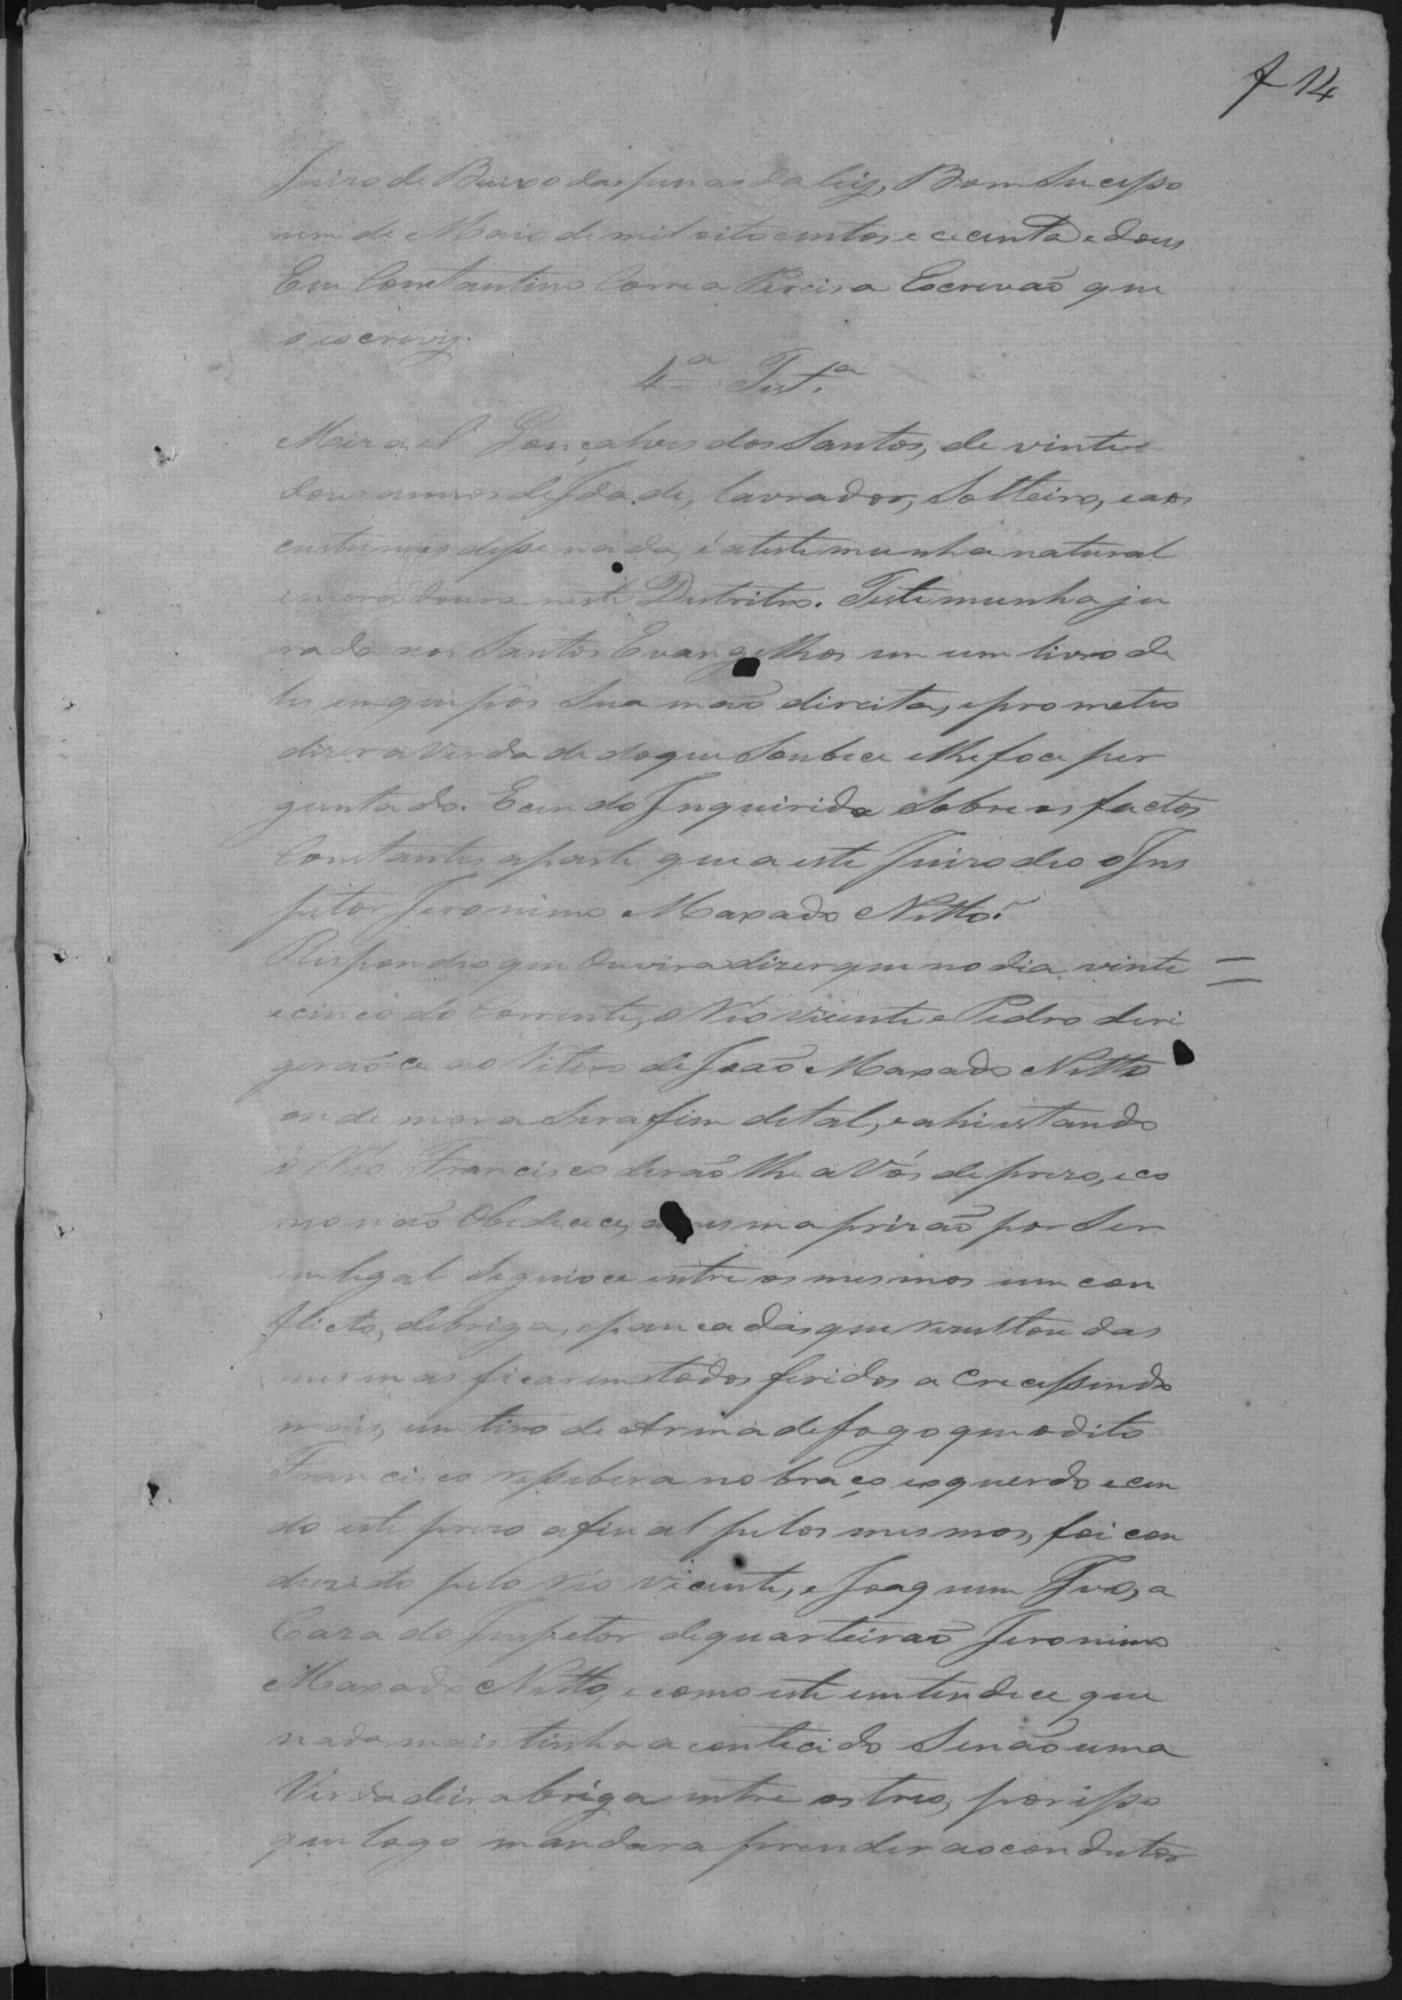 f 14
Juizo de Baixo das penas da lei, Bom Sucesso
nem de Maio de mil oito centos e cecenta e dous
Eu Constantino Correa Pereira Escrevão que
o escrevy.
4ª Testª
Mizael Gonçalves dos Santos, de vinte e
dous annos de Idade, lavrador, Solteiro, e aos
custumes disse nada, é a testemunha natural
e moradoura neste Distrito. Testemunha ju
rada aos Santos Evangelhos em um livro de
les em que pôs Sua mão direita, e prometeo
dizer a Verdade do que Soubece e lhe foce per
guntado. E cendo Inquirida Sobre os factos
Constantes a parte que a este Juizo deo o Ins
petor Jeronimo Maxado Netto.
Respondeo que Ouvira dizer que no dia vinte
e cinco do Corrente, o Réo Vicente e Pedro deri
gerãoce ao Ritiro de João Maxado Netto
onde mora Serafim de tal, e ahi estando
o Réo Francisco derão lhe a Vós de prezo, e co
mo não Obedecece, a mesma prizão por Ser
em legal Seguioce entre os mesmos um con
flicto, de briga, e pancadas que rezultou das
mesmas ficarem todos feridos a Crecessendo
mais, um tiro de Arma de fogo que o dito
Francisco ressebera no braço esquerdo e cen
do este prezo a final pelos mesmos, foi con
duzido pelo réo Vicente, e Joaquim Ivo, a
Caza do Inspetor de quarteirão Jeronimo
Maxado Netto, e como este entendece que
nada mais tinha acontecido Senão uma
Verdadeira briga entre os tres, por isso
que logo mandara prender ao condutor